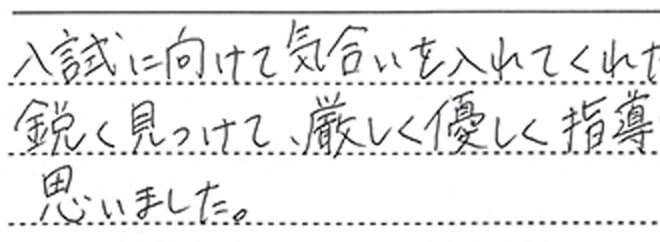 入試に向けて気合いを入れてくれた
鋭く見つけて、厳しく優しく指導
思いました。